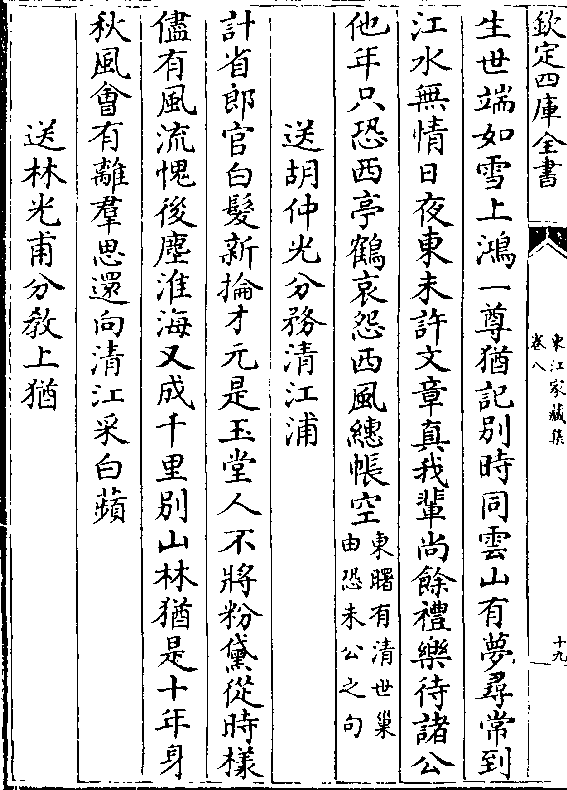 欽定四庫全書
東江家藏集
卷八
十九
生世端如雪上鴻一尊猶記别時同雲山有夢尋常到
江水無情日夜東未許文章真我輩尚餘禮樂待諸公
他年只恐西亭鶴哀怨西風總帳空東曙有清世巢
由恐未公之句
送胡仲光分務清江浦
計省郎官白髮新掄才元是玉堂人不將粉黛從時樣
儘有風流愧後塵淮海又成千里別山林猶是十年身
秋風會有離羣思還向清江采白蘋
送林光甫分教上猶